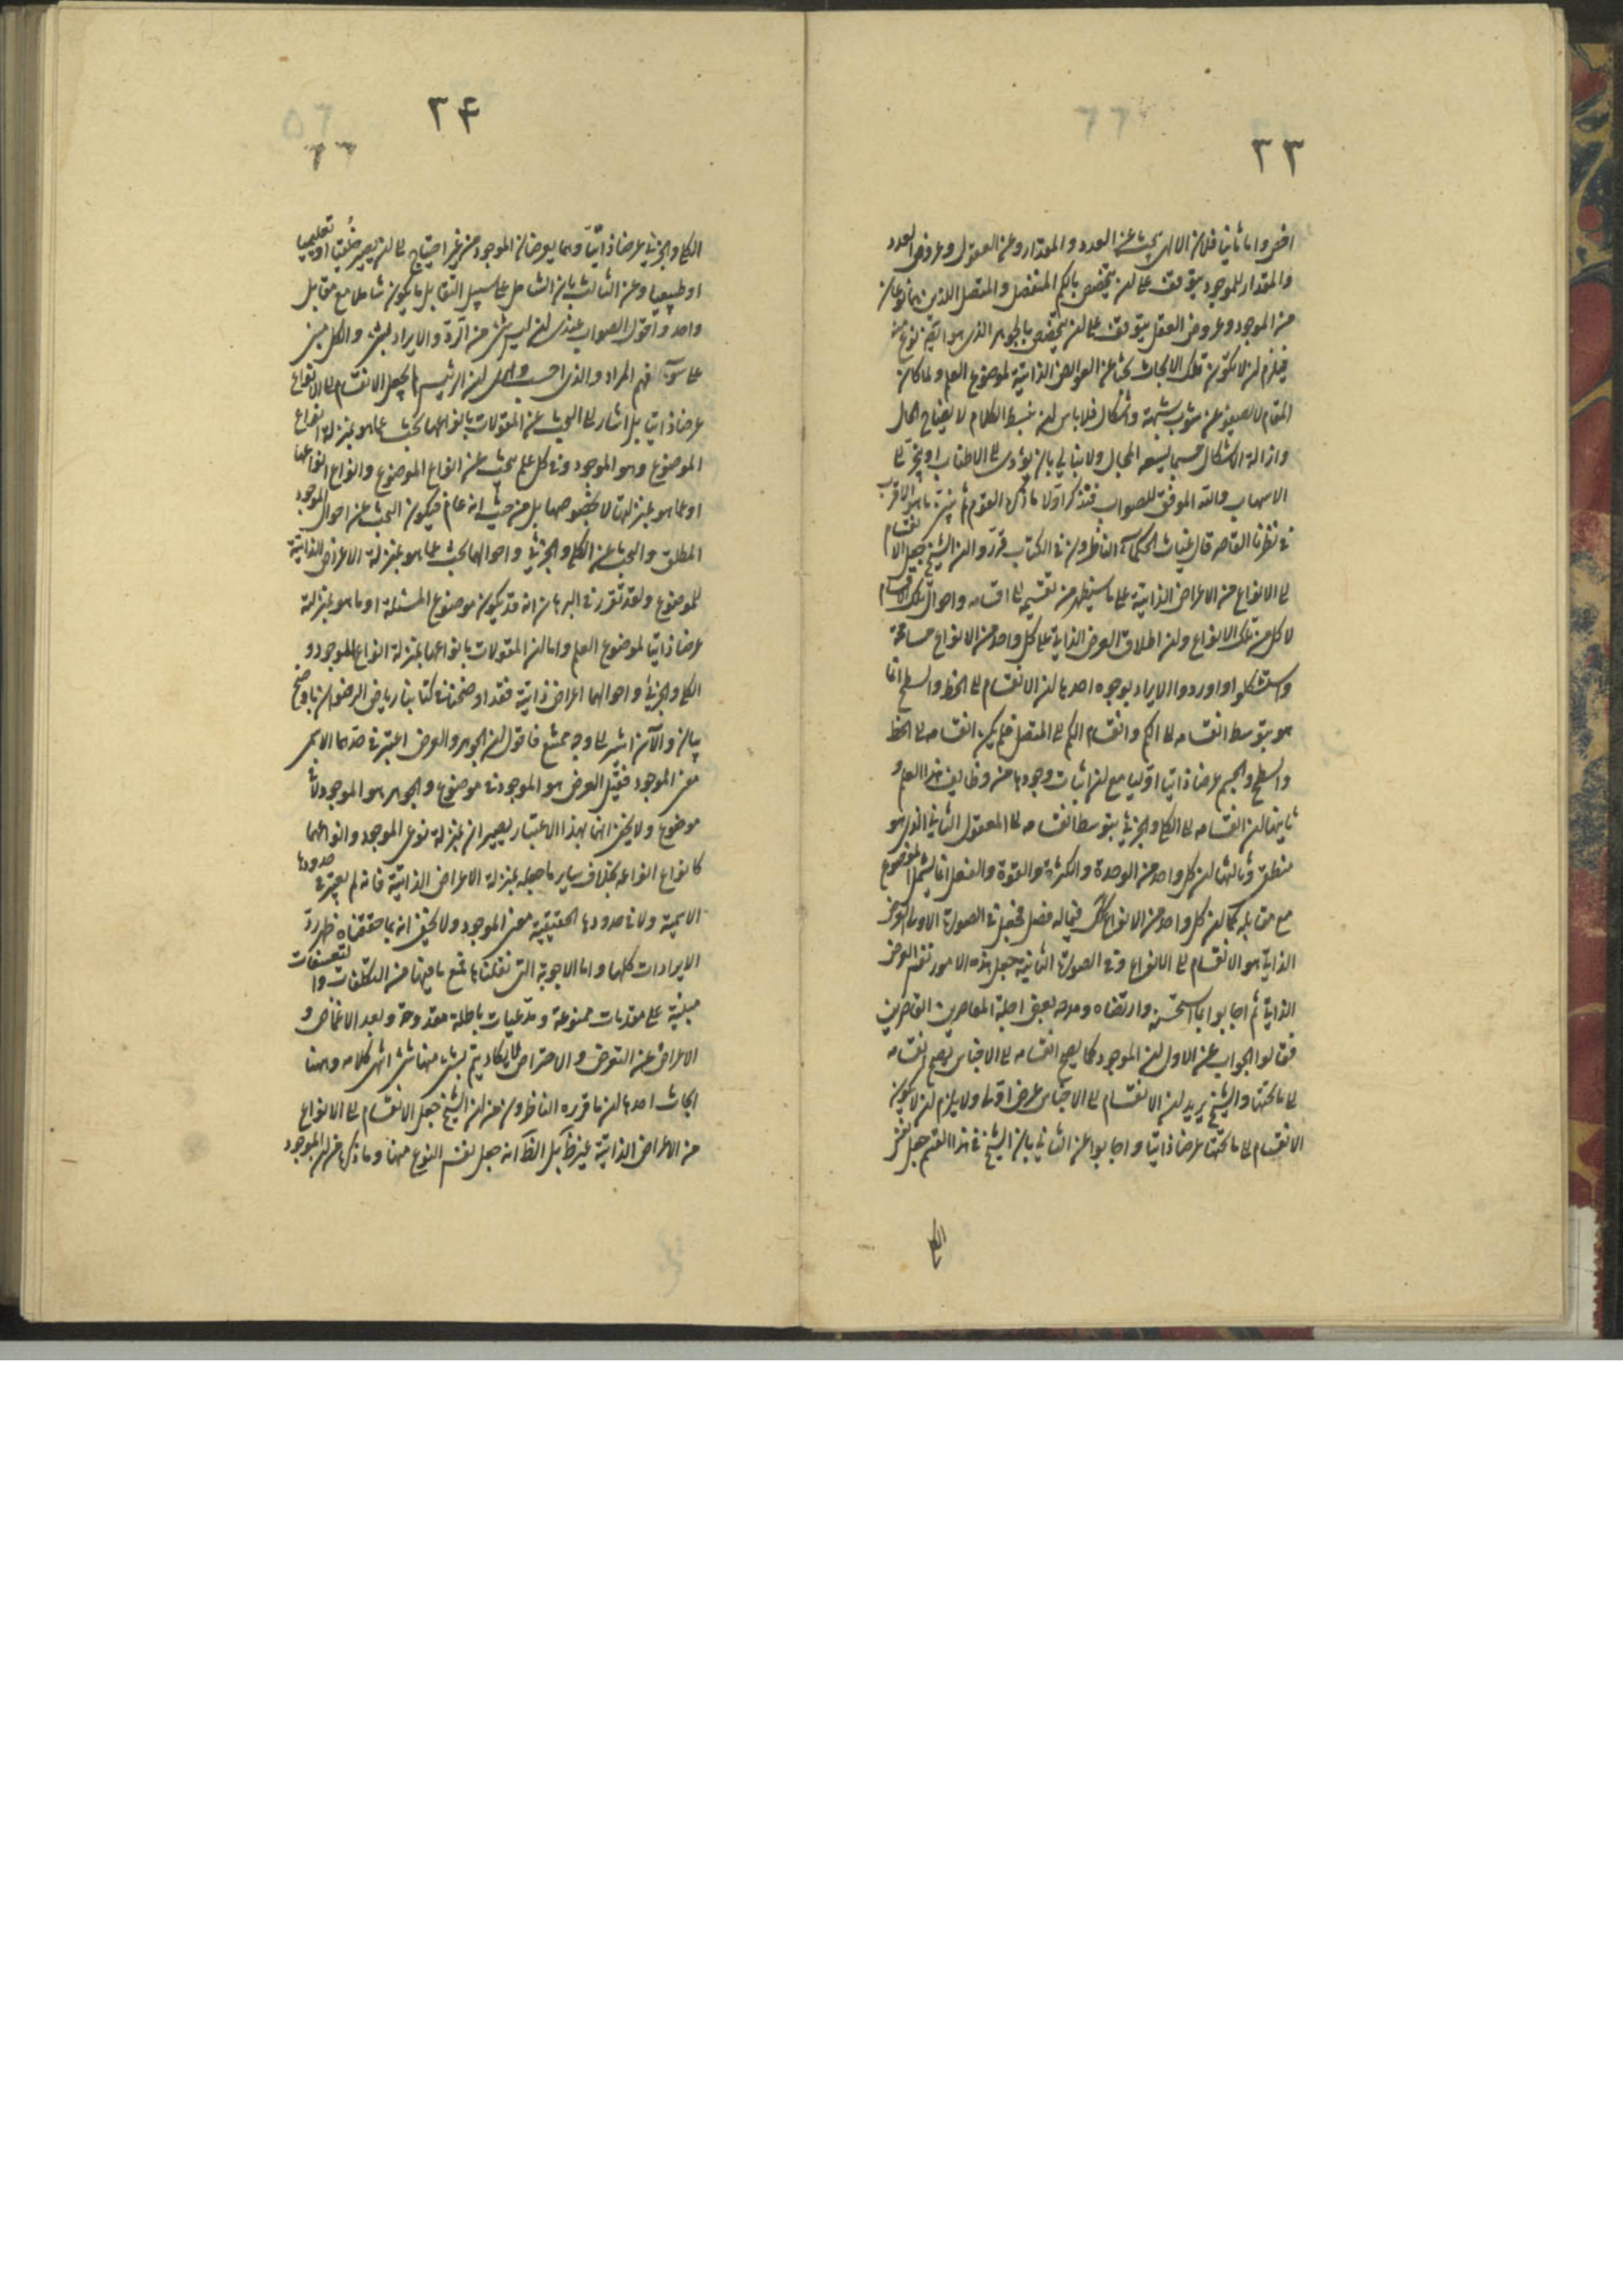 ٣٣
اخص واما ثانيا فلان الالهى يبحث عن العدد والمقدار وعن العقول وعروض العدد
والمقدار للموجود يتوقف على ان يتخصص بالكم المنفصل والمتصل اللذين هما نوعان
من الموجود وعروض العقل يتوقف على ان يتخصص بالجوهر الذى هو ايضا نوع منه
فيلزم ان لا تكون تلك الابحاث بحثا عن العوارض الذاتية لموضوع العلم ولما كان
المقام لا يصفو عن شوب شبهة واشكال فلا باس ان نبسط الكلام لايضاح الحال
وازالة الاشكال حسبما يسعه المجال ولا نبالى بان يؤدى الى الاطناب او ينجر الى
الاسهاب والله الموفق للصواب فنذكر اولا ما ذكره القوم ثم نبين ما هو الاقرب
فى نظرنا القاصر قال غياث الحكماء الناظرون فى الكتاب قرروا ان الشيخ جعل الانقسام
الى الانواع من الاعراض الذاتية على ما سيظهر من تقسيمه الى اقسامه واحوال تلك الاقسام
لا كل من تلك الانواع وان اطلاق العرض الذاتى على كل واحد من الانواع مسامحة
واستشكلوا واوردوا الايراد بوجوه احدها ان الانقسام الى الخط والسطح انما
هو بتوسط انقسامه الى الكم وانقسام الكم الى المتصل فلم يكن انقسامه الى الخط
والسطح والجسم عرضا ذاتيا اوليا مع ان اثبات وجودها من وظايف هذا العلم و
ثانيها ان انقسامه الى الكلى والجزئى بتوسط انقسامه الى المعقول الثانى الذى هو
منطقى وثالثها ان كل واحد من الوحدة والكثرة والقوة والفعل انما يشمل الموضوع
مع مقابله كما ان كل واحد من الانواع كذلك فما باله فصل فجعل فى الصورة الاولى العرض
الذاتى هو الانقسام الى الانواع وفى الصورة الثانية جعل هذه الامور نفس العرض
الذاتى ثم اجابوا بما استحسنه وارتضاه ومدحه بعض اجلة المعاصرين القاصرين
فقالوا الجواب عن الاول ان الموجود كما يصح انقسامه الى الاجناس يصح انقسامه
الى ما تحتها والشيخ يريد ان الانقسام الى الاجناس عرض اولى ولا يلزم ان لا يكون
الانقسام الى ما تحتها عرضا ذاتيا واجابوا عن الثانى بان الشيخ فى هذا القسم جعل نفس
الكلى
٣۴
الكلى والجزئى عرضا ذاتيا وهما يعرضان الموجود من غير احتياج الى ان يصير خلقيا او تعليميا
او طبيعيا وعن الثالث بان الشامل على سبيل التقابل ما يكون شاملا مع مقابل
واحد واقول الصواب عندى ان ليس شئ من الرد والايراد بشئ والكل مبنى
على سوء فهم المراد والذى احسب واجمل ان الرئيس لم يجعل الانقسام الى الانواع
عرضا ذاتيا بل اشار الى البحث عن المقولات بانواعها بحث عما هو بمنزلة انواع
الموضوع وهو الموجود وفى كل علم يبحث عن انواع الموضوع وانواع انواعها
او عما هو بمنزلتها لا بخصوصها بل من حيث انه عام فيكون البحث عن احوال الموجود
المطلق والبحث عن الكلى والجزئى واحوالهما بحث عما هو بمنزلة الاعراض الذاتية
للموضوع ولقد تقرر فى البرهان انه قد يكون موضوع المسئلة او ما هو بمنزلته
عرضا ذاتيا لموضوع العلم واما ان المقولات بانواعها بمنزلة انواع للموجود و
الكلى والجزئى واحوالهما اعراض ذاتية فقد اوضحته فى كتابنا رياض الرضوان باوضح
بيان والآن اشير الى وجه ممتع فاقول ان الجوهر والعرض اعتبر فى حدهما الاسمى
معنى الموجود فقيل العرض هو الموجود فى موضوع والجوهر هو الموجود لا فى
موضوع ولا يخفى انهما بهذا الاعتبار يصيران بمنزلة نوعى الموجود وانواعهما
كانواع انواعه بخلاف ساير ما جعله بمنزلة الاعراض الذاتية فانه لم يعتبر فى حدودها
الاسمية ولا فى حدودها الحقيقية معنى الموجود ولا يخفى انه بما حققناه ظهر رد
الايرادات كلها واما الاجوبة التى نقلناها فمع ما فيها من التكلفات والتعسفات
مبنية على مقدمات ممنوعة ومدعيات باطلة مقدوحة وبعد الاغماض و
الاعراض عن التعرض والاعتراض فلا يكاد يتم بشئ منها شئ انتهى كلامه وههنا
ابحاث احدها ان ما قرره الناظرون من ان الشيخ جعل الانقسام الى الانواع
من الاعراض الذاتية غير ظاهر بل الظاهر انه جعل نفس النوع منها وما ذكره من ان الموجود